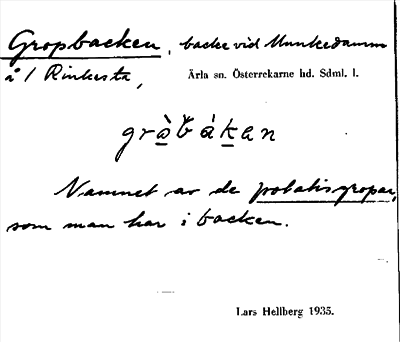 Gropbacken, backe vid Munkedamm
å / Rinkesta, Ärla sn. Österrekarne hd. Sdml. l.
gràb̆ák̲en
Namnet av de potatisgropar,
som man har i backen.
Lars Hellberg 1935.